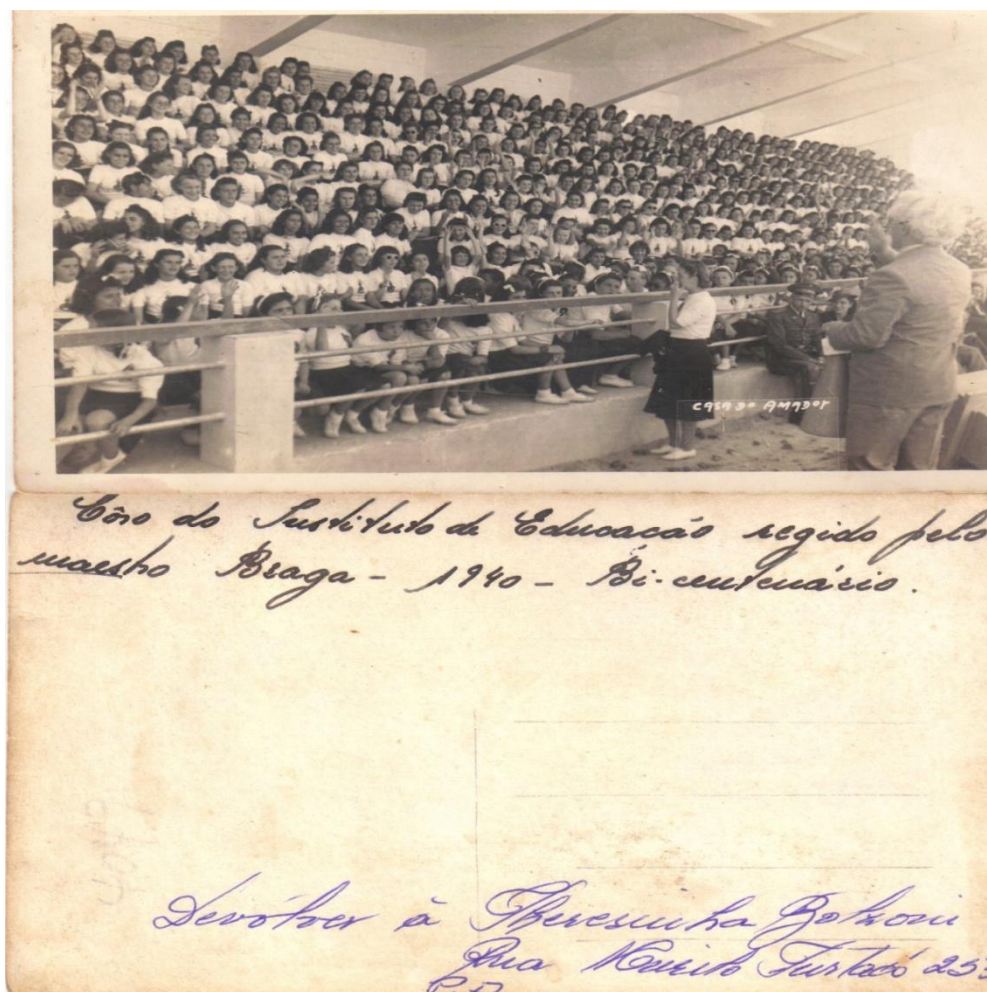 CASA DO AMADOR
Côro do Instituto de Educação regido pelo
maestro Braga - 1940 - Bi-centenário.
Devolver à Theresinha
Rua Furtado